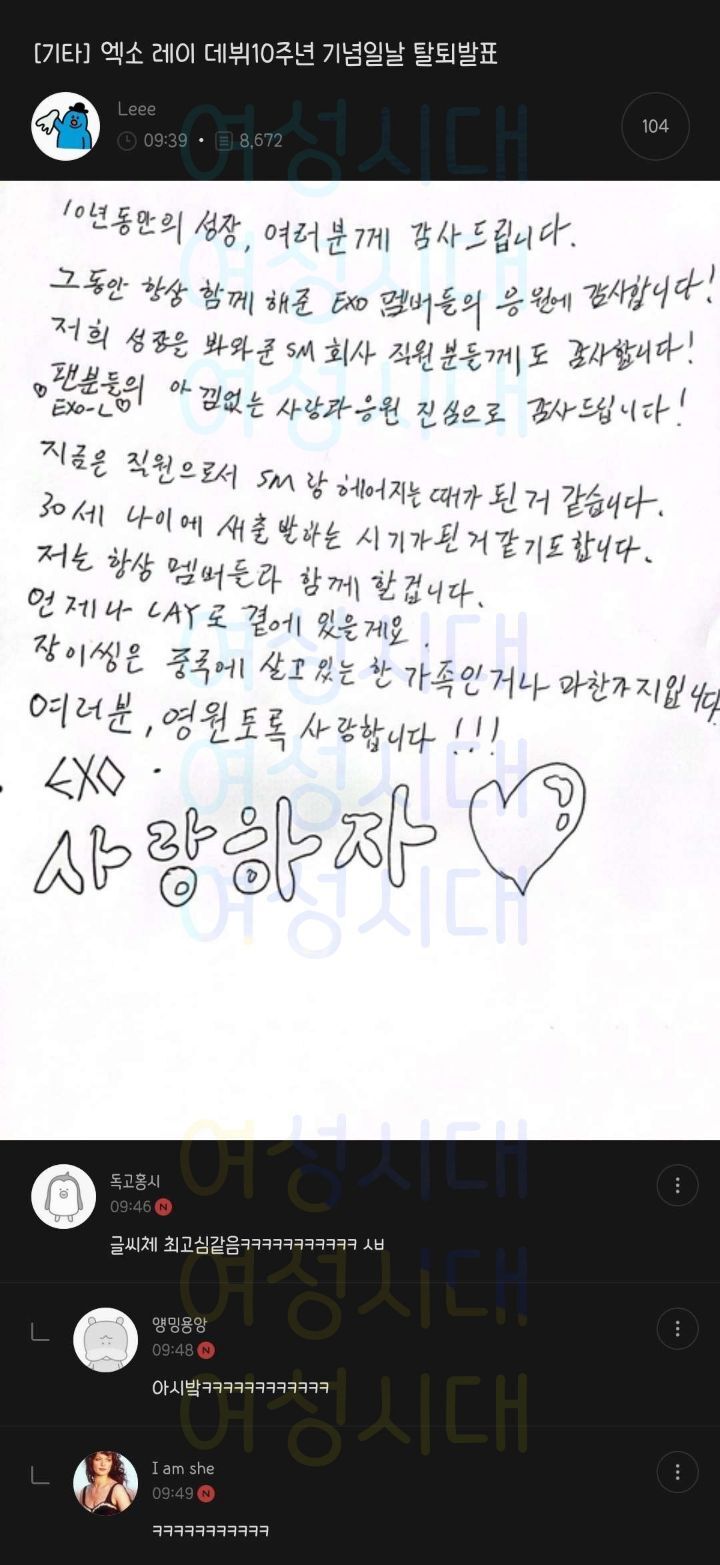 [기타] 엑소 레이 데뷔10주년 기념일날 탈퇴발표
Leee
09:39 • 8,672
104
10년동안의 성장, 여러분께 감사드립니다.
그동안 항상 함께 해준 EXO 멤버들의 응원에 감사합니다!
저희 성장을 봐와준 SM 회사 직원분들께도 감사합니다!
팬분들의 아낌없는 사랑과 응원 진심으로 감사드립니다!
EXO-L
지금은 직원으로서 SM랑 헤어지는 때가 된 거 같습니다.
30세 나이에 새출발하는 시기가 된거 같기도합니다.
저는 항상 멤버들과 함께 할겁니다.
언제나 LAY로 곁에 있을게요.
장이씽은 중국에 살고있는 한 가족인거나 마찬가지입니다.
여러분, 영원토록 사랑합니다!!!
EXO.
사랑하자
독고홍시
09:46 N
글씨체 최고심같음ㅋㅋㅋㅋㅋㅋㅋㅋㅋㅋㅋ ㅅㅂ
얭밍용앙
09:48 N
아시발ㅋㅋㅋㅋㅋㅋㅋㅋㅋㅋㅋㅋ
I am she
09:49 N
ㅋㅋㅋㅋㅋㅋㅋㅋㅋㅋㅋ
여성시대
여성시대
여성시대
여성시대
여성시대
여성시대
여성시대
여성시대